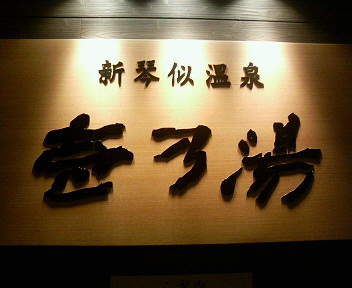 新琴似温泉
壱乃湯